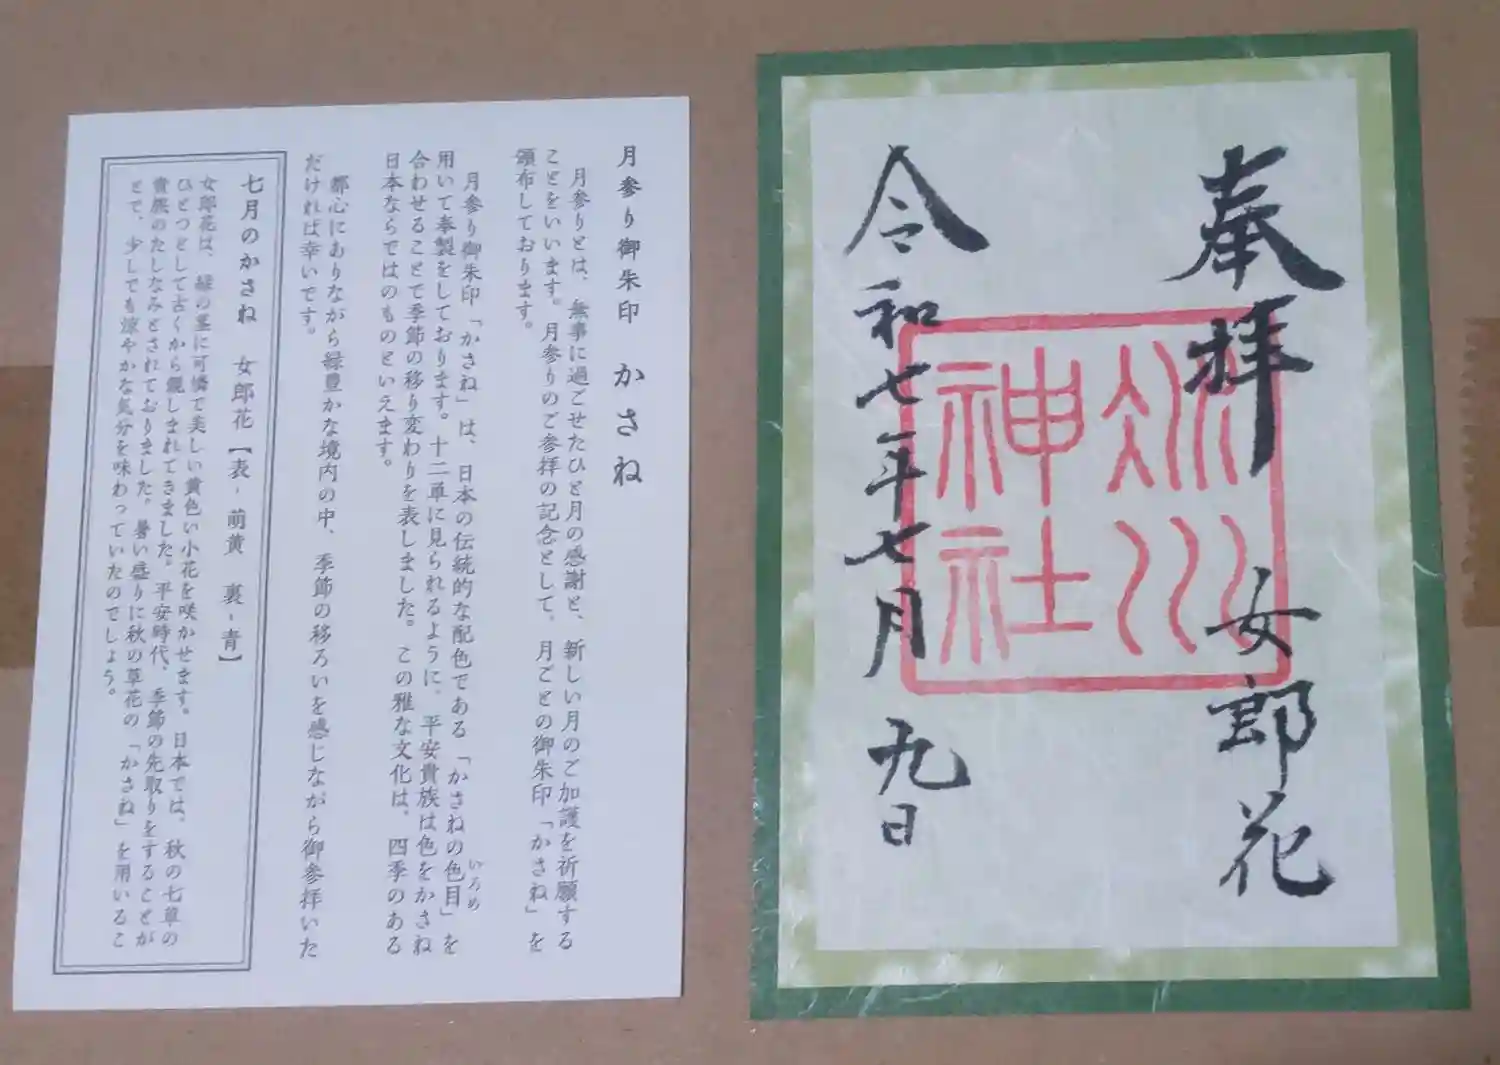 月参り御朱印　かさね
月参りとは、無事に過ごせたひと月の感謝と、新しい月のご加護を祈願する
ことをいいます。月参りのご参拝の記念として、月ごとの御朱印「かさね」を
頒布しております。
月参り御朱印「かさね」は、日本の伝統的な配色である「かさねの色目」を
いろめ
用いて奉製をしております。十二単に見られるように、平安貴族は色をかさね
合わせることで季節の移り変わりを表しました。この雅な文化は、四季のある
日本ならではのものといえます。
都心にありながら緑豊かな境内の中、季節の移ろいを感じながら御参拝いた
だければ幸いです。
七月のかさね　女郎花【表-萌黄　裏-青】
女郎花は、緑の茎に可憐で美しい黄色い小花を咲かせます。日本では、秋の七草の
ひとつとして古くから親しまれてきました。平安時代、季節の先取りをすることが
貴族のたしなみとされておりました。暑い盛りに秋の草花の「かさね」を用いるこ
とで、少しでも涼やかな気分を味わっていたのでしょう。
奉拝　女郎花
氷川
神社
令和七年七月九日